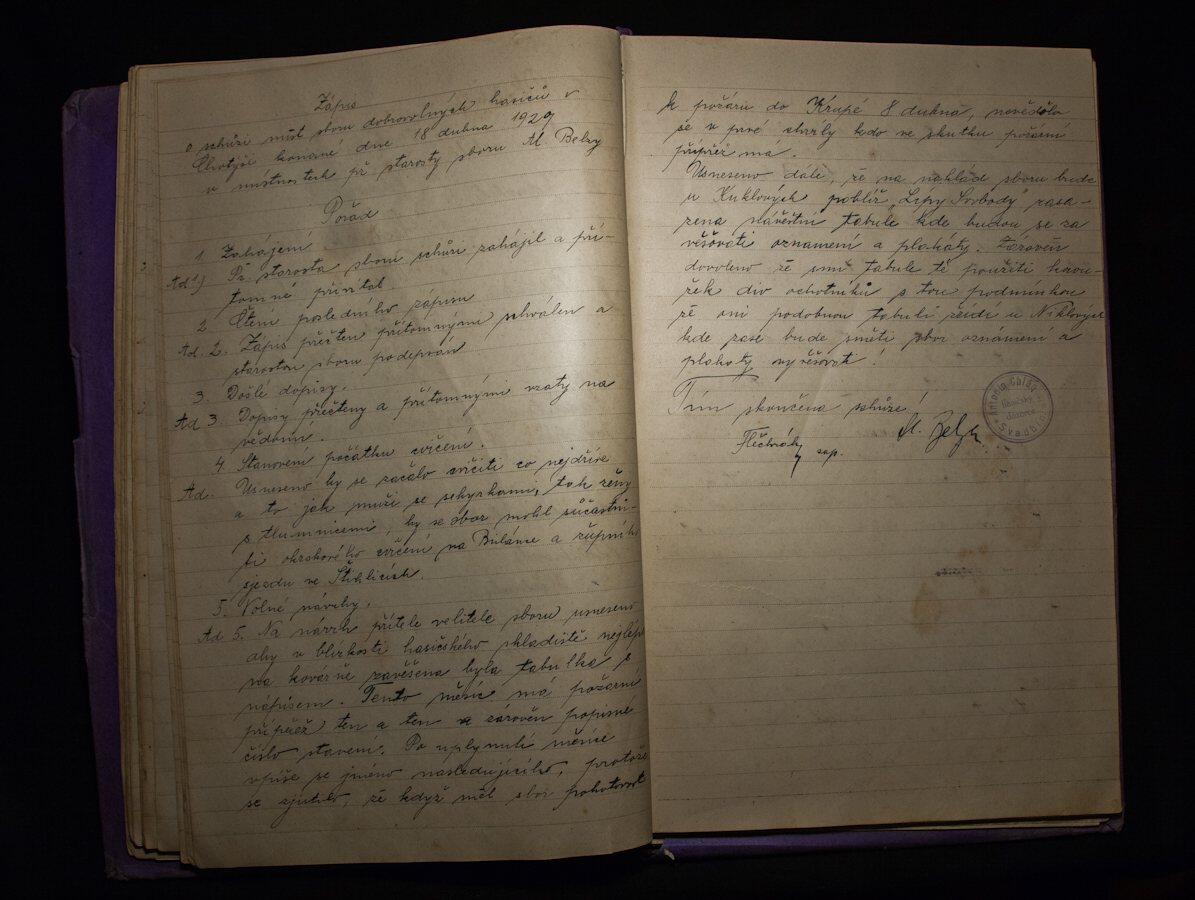 Zápis
o schůzi míst. sboru dobrovolných hasičů v
Chotýši konané dne 18 dubna 1929
v místnostech př starosty sboru Al. Belzy
Pořad
1. Zahájení
Ad 1.) Př. starosta sboru schůzi zahájil a pří-
tomné přivítal.
2. Čtení posledního zápisu
Ad. 2. Zápis přečten přítomnými schválen a
starostou sboru podepsán
3. Došlé dopisy.
Ad 3. Dopisy přečteny a přítomnými vzaty na
vědomí.
4. Stanovení počátku cvičení.
Ad. Usneseno by se začalo cvičiti co nejdříve
a to jak muži se sekyrkami, tak ženy
s tlumnicemi, by se sbor mohl súčastni-
ti okrskového cvičení na Bulánce a župního
sjezdu ve Štíhlicích.
5. Volné návrhy.
Ad 5. Na návrh přítele velitele sboru usneseno
aby v blízkosti hasičského skladiště nejlépe
na kovárně zavěšena byla tabulka s
nápisem. Tento měsíc má požární
přípřež ten a ten a zároveň popisné
číslo stavení. Po uplynutí měsíce
vpíše se jméno následujícího, protože
se zjistilo, že když měl sbor pohotovost
k požáru do Krupé 8 dubna, nevědělo
se v prvé chvíly kdo ve skutku požární
přípřež má.
Usneseno dále, že na náklad sboru bude
u Kuklových poblíž „Lípy Svobody" zasa-
zena návěstní tabule kde budou se za
věšovati oznámení a plakáty. Zároveň
dovoleno že smí tabule té použíti krou-
žek div ochotníků s tou podmínkou
že oni podobnou tabuli zřídí u Niklových
kde zase bude směti sbor oznámení a
plakáty vyvěšovat!
Tím skončena schůze!
zap.
Antonín